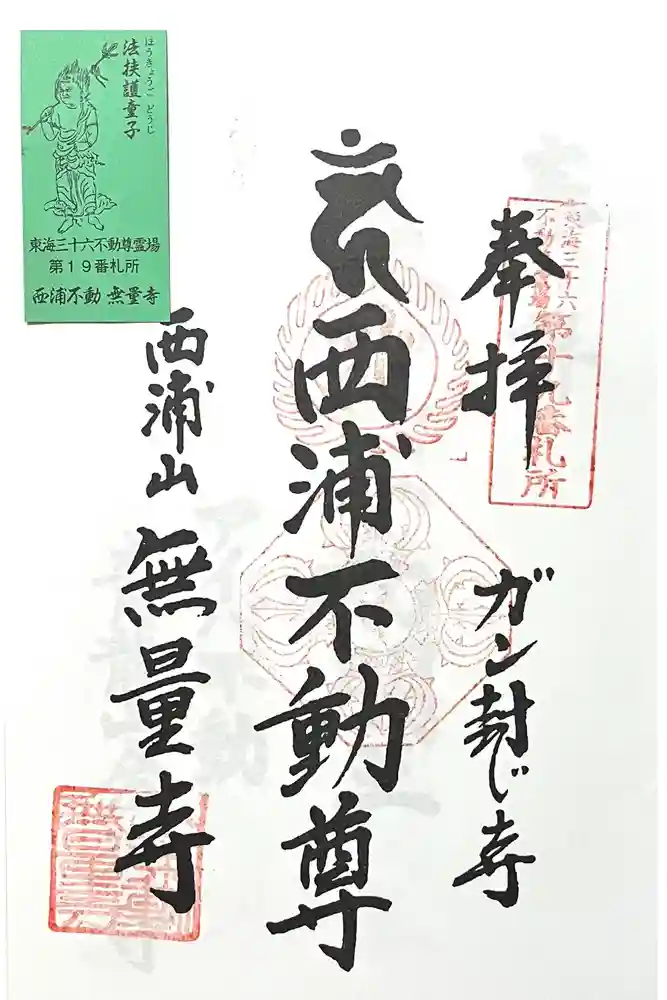 法挟護童子
ほうきょうご どうじ
東海三十六不動尊霊場
第19番札所
西浦不動 無量寺
奉拝
ガン封じ寺
西浦不動尊
西浦山
無量寺
東海三十六
不動尊霊場
第十九番札所